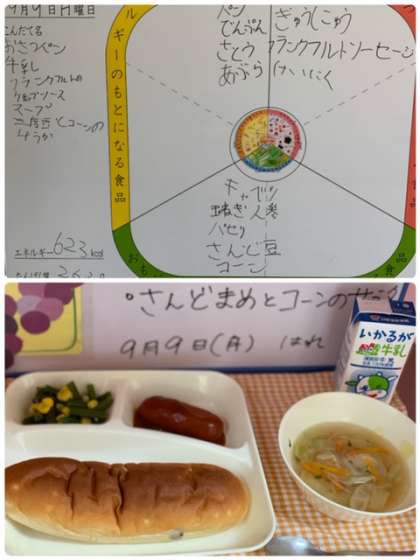 9月9日月曜日
こんだてる
おさつパン
牛乳
フランクフルトの
ケチャップソース
スープ
三度豆とコーンの
ソテー
エネルギー623kcal
ギーのもとになる食品
パン
でんぷん
さとう
あぶら
ぎゅうにゅう
フランクフルトソーセージ
けいにく
キャベツ
玉ねぎ 人参
パセリ
さんど豆
コーン
・さんどまめとコーンの
9月9日(月) はれ
いかるが
牛乳